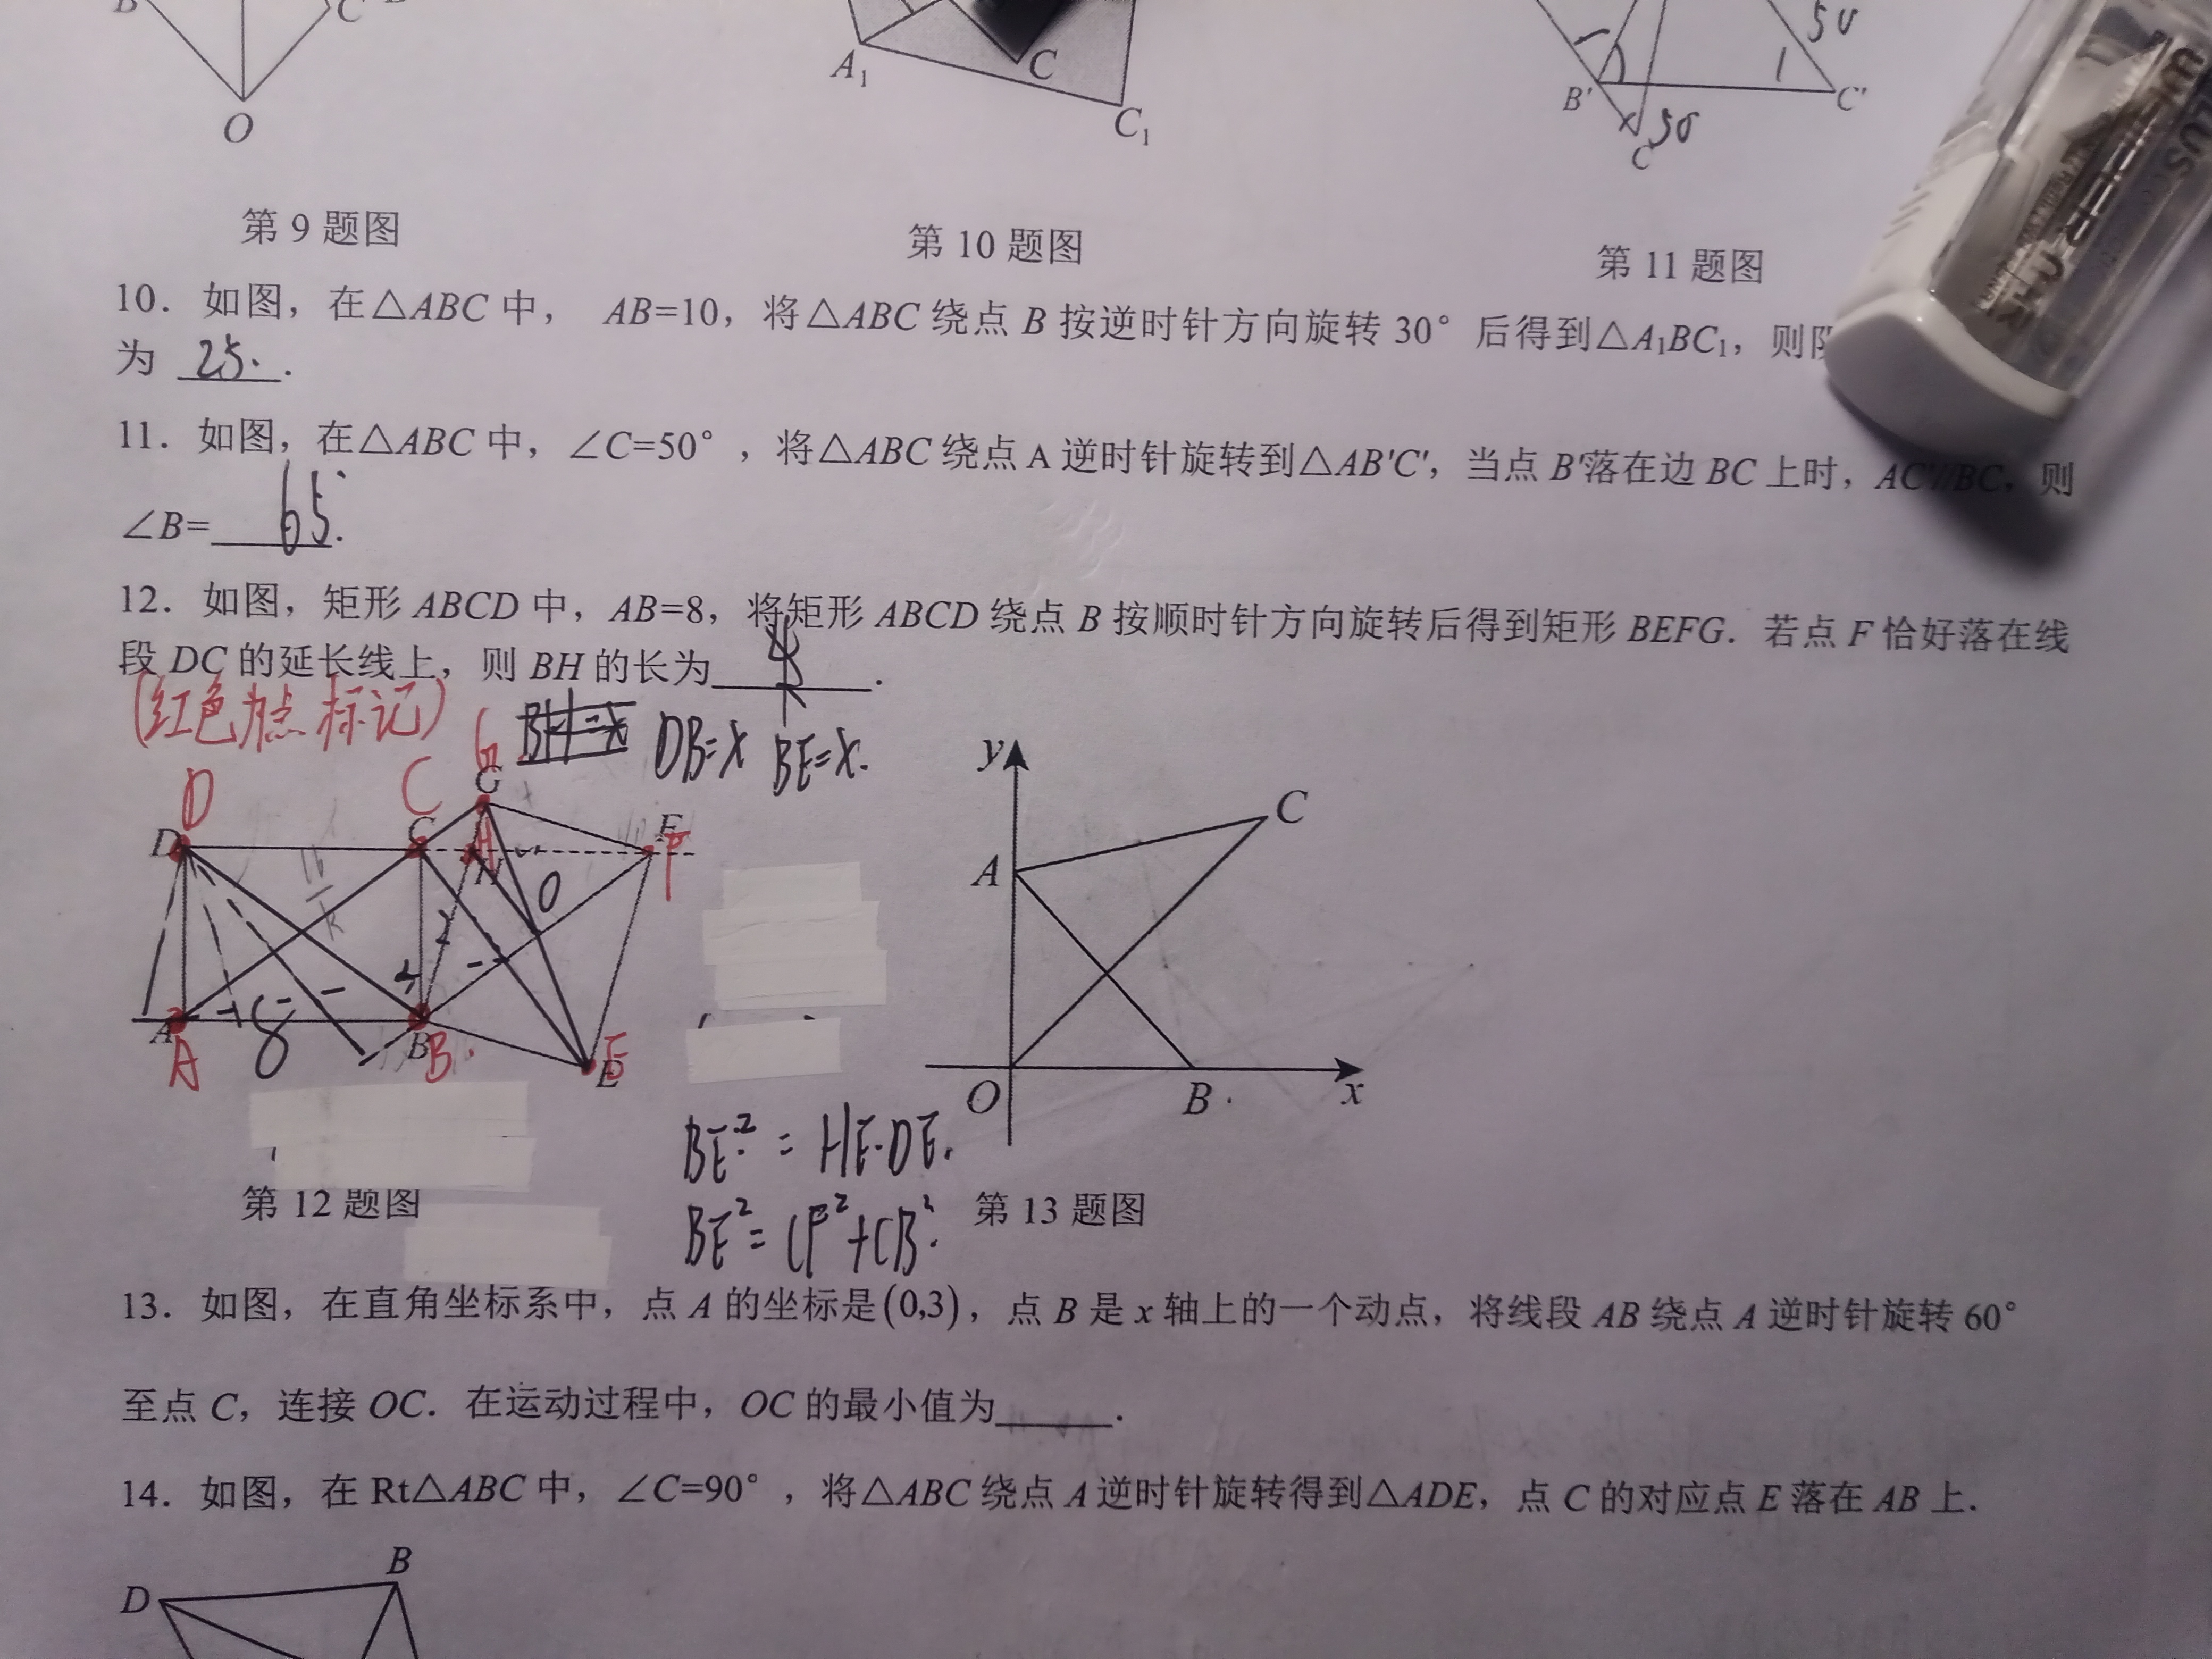 B
C
O
A₁
C
C₁
50
1
B'
C'
50
C
第 9 题图
第 10 题图
第 11 题图
10．如图，在△ABC 中， AB=10，将△ABC 绕点 B 按逆时针方向旋转 30° 后得到△A₁BC₁，则阴
为 25.
11．如图，在△ABC 中，∠C=50°，将△ABC 绕点 A 逆时针旋转到△AB'C'，当点 B'落在边 BC 上时，AC'//BC，则
∠B= 65.
12．如图，矩形 ABCD 中，AB=8，将矩形 ABCD 绕点 B 按顺时针方向旋转后得到矩形 BEFG．若点 F 恰好落在线
段 DC 的延长线上，则 BH 的长为 ．
(红色为点标记)
DB=x BE=x.
D
C
G
G
D
C
H
H
F
F
O
2
A
8
B
A
B.
E
E
y
C
A
O
B
x
BE²=HE·DE.
BE²=CF²+CB².
第 12 题图
第 13 题图
13．如图，在直角坐标系中，点 A 的坐标是(0,3)，点 B 是 x 轴上的一个动点，将线段 AB 绕点 A 逆时针旋转 60°
至点 C，连接 OC．在运动过程中，OC 的最小值为 ．
14．如图，在 Rt△ABC 中，∠C=90°，将△ABC 绕点 A 逆时针旋转得到△ADE，点 C 的对应点 E 落在 AB 上．
B
D